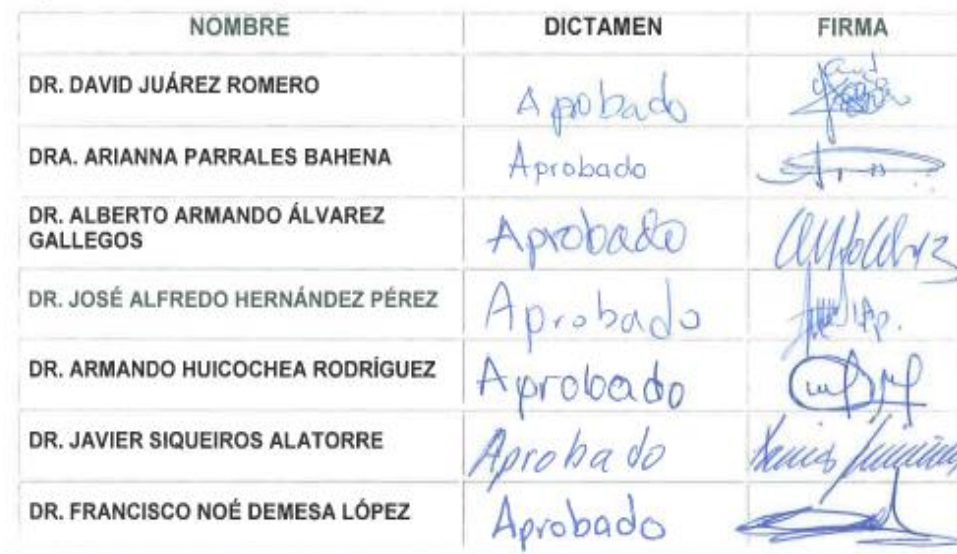 NOMBRE DICTAMEN FIRMA
DR. DAVID JUÁREZ ROMERO Aprobado
DRA. ARIANNA PARRALES BAHENA Aprobado
DR. ALBERTO ARMANDO ÁLVAREZ
GALLEGOS Aprobado
DR. JOSÉ ALFREDO HERNÁNDEZ PÉREZ Aprobado
DR. ARMANDO HUICOCHEA RODRÍGUEZ Aprobado
DR. JAVIER SIQUEIROS ALATORRE Aprobado
DR. FRANCISCO NOÉ DEMESA LÓPEZ Aprobado